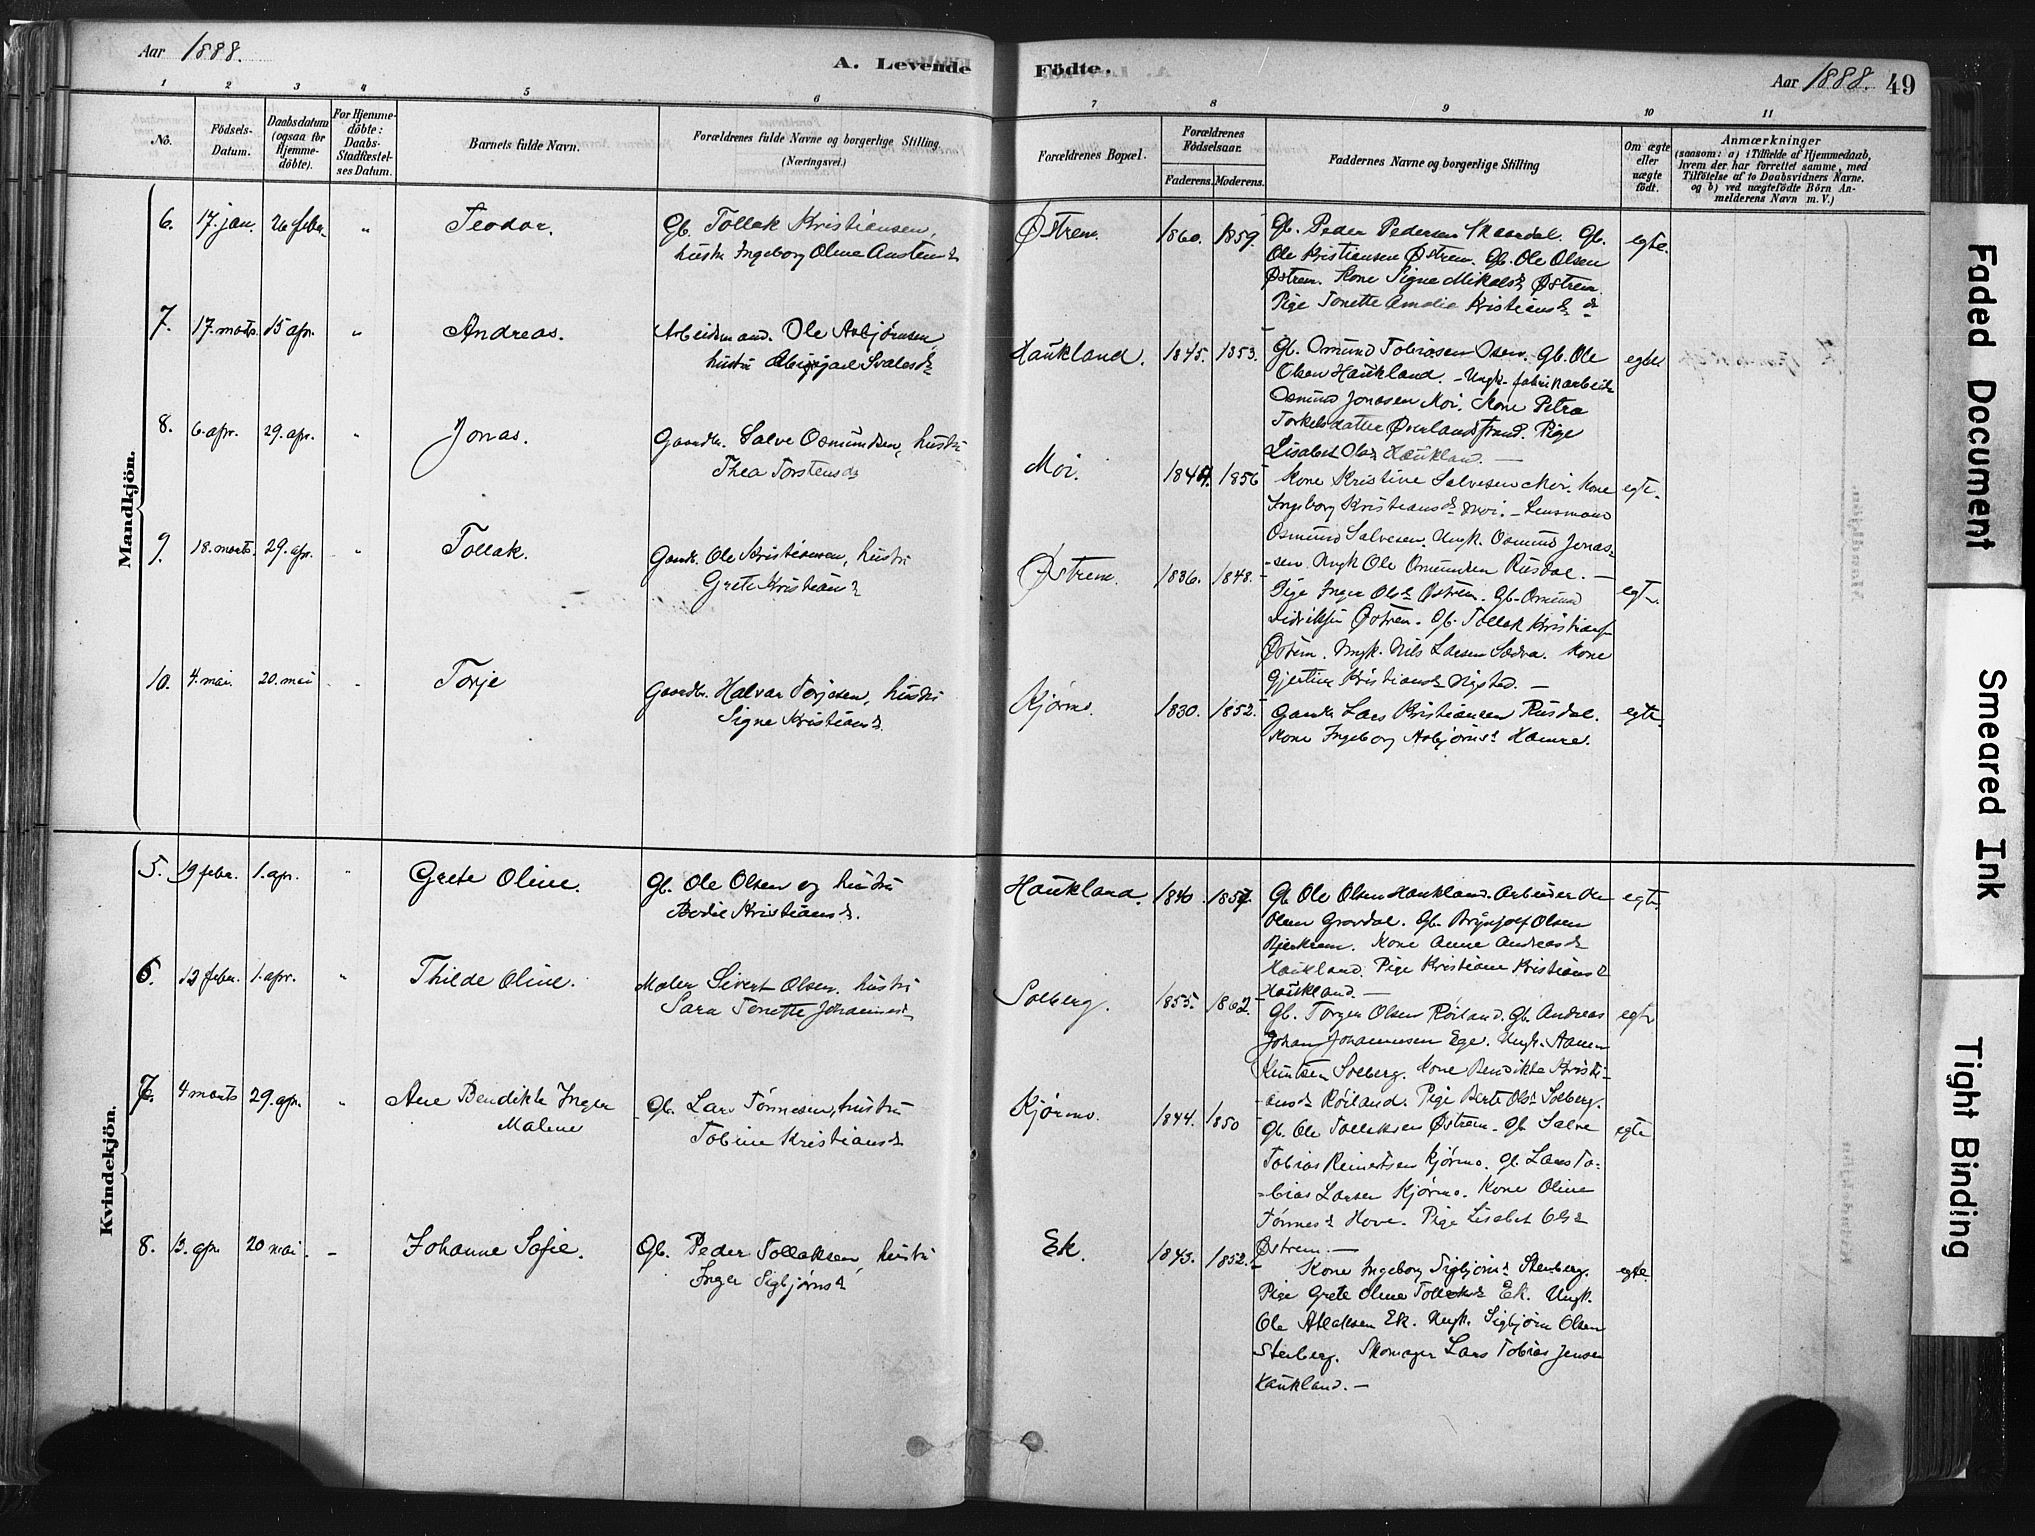 Aar 1888.
A. Levende Födte.
Aar 1888. 49
1 2 3 4 5 6 7 8 9 10 11
No.
Födsels-Datum.
Daabsdatum (ogsaa for Hjemme-döbte).
For Hjemme-döbte: Daabs-Stadfæstel-ses Datum.
Barnets fulde Navn.
Forældrenes fulde Navne og borgerlige Stilling (Næringsvei.)
Forældrenes Bopæl.
Forældrenes Födselsaar.
Faderens. Moderens.
Faddernes Navne og borgerlige Stilling
Om ægte eller uægte födt.
Anmærkninger
(saasom: a) i Tilfælde af Hjemmedaab, hvem der har forrettet samme, med Tilföielse af to Daabsvidners Navne. og b) ved uægtefödte Börn An-melderens Navn m. V.)
Mandkjön.
6. 17. jan. 26 febr. " Teodor.
Gb. Tollak Kristiansen,
hustr Ingeborg Oline Austen d.
Østrem. 1860. 1859.
Gb. Peder Pedersen Skaardal. Gb.
Ole Kristiansen Østrem. Gb. Ole Olsen
Østrem. Kone Signe Mikalsd. Østrem.
Pige Tonette Amalia Kristiansd.
egte.
7. 17. marts. 15 apr. " Andreas.
Arbeidsmand. Ole Asbjørnsen,
hustru Abigjael Svalesd.
Haukland. 1845. 1853.
Gb. Osmund Tobiasen Osen. Gb. Ole
Olsen Haukland. - Ungk. fabrikarbeid.
Osmund Jonasen Moi. Kone Petra
Torkelsdatter Øverlandstrand. Pige
Lisabet Olsd. Haukland. -
egte
8. 6. apr. 29. apr. " Jonas.
Gaardb. Salve Osmundsen, hustru
Thea Torstensd.
Moi. 1844. 1856
Kone Kristine Salvesen Moi. Kone
Ingeborg Kristiansd. Moi. - Lensmand
Osmund Salvesen. Ungk. Osmund Jonas-
-sen. Ungk Ole Osmundsen Rusdal. -
egte.
9. 18. marts. 29. apr. " Tollak.
Gaardb. Ole Kristiansen, hustru
Grete Kristiansd.
Østrem. 1836. 1848.
Pige Inger Olsd. Østrem. Gb. Osmund
Didriksen Østrem. Gb. Tollak Kristians.
Østrem. Ungk. Nils Larsen Sædva. Kone
Gjertine Kristiansd. Nysted. -
egte.
10. 4. mai. 20. mai " Torje
Gaardb. Halvar Torjesen, hustru
Signe Kristiansd.
Kjørmo. 1830. 1852.
Gaardb. Lars Kristiansen Rusdal.
Kone Ingeborg Asbjørnsd. Hamre.
egte.
Kvindekjön.
5. 19 febr. 1. apr. " Grete Oline.
Gb. Ole Olsen og hustru
Bodil Kristiansd.
Haukland. 1840. 1857.
Gb. Ole Olsen Haukland. Arbeider Ole
Olsen Grovdal. Gb. Brynjulf Olsen
Bjerkrem. Kone Anne Andreasd.
Haukland. Pige Kristiane Kristiansd.
Haukland. -
egte.
6. 12 febr. 1. apr. " Thilde Oline.
Maler Sivert Olsen. hustru
Sara Tonette Johannesd.
Solberg. 1855. 1862.
Gb. Torger Olsen Røiland. Gb. Andreas
Johan Johannesen Ege. Ungk. Aanen
Knutsen Solberg. Kone Bendikte Kristi-
-ansd. Røiland. Pige Berte Olsd. Solberg.
egte
7. 4 marts 29. apr. " Ane Bendikte Inger
Malene
Gb. Lars Tønnesen, hustru
Tobine Kristiansd.
Kjørmo. 1844. 1850
Gb. Ole Tollaksen Østrem. Gb Salve
Tobias Reinertsen Kjørmo. Gb. Lars To-
-bias Larsen Kjørmo. Kone Oline
Tønnesd. Hove. Pige Lisabet Olsd.
Østrem. -
egte
8. 13. apr. 20 mai. - Johanne Sofie.
Gb. Peder Tollaksen, hustru
Inger Sigbjørnsd.
Ek. 1843. 1852.
Kone Ingeborg Sigbjørnsd. Stenberg.
Pige Grete Oline Tollaksd. Ek. Ungk.
Ole Atlaksen Ek. Ungk. Sigbjørn Olsen
Stenberg. Skomager Lars Tobias Jensen
Haukland. -
egte.
Faded Document
Smeared Ink
Tight Binding